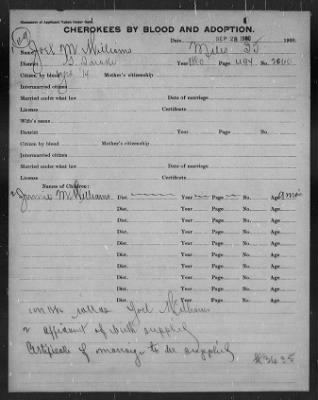 Memorandum of Applicant Taken Under Oath.
CHEROKEES BY BLOOD AND ADOPTION.
Date SEP 28 1900 1900.
Name Joel M Williams Miles I.T.
District Year 1880 Page No.
Citizen by blood yes Mother's citizenship
Intermarried citizen
Married under what law Date of marriage
License Certificate
Wife's name
District Year Page No.
Citizen by blood Mother's citizenship
Intermarried citizen
Married under what law Date of marriage
License Certificate
Names of Children:
Jennie M Williams Dist. Year Page No. Age 9 mos
Dist. Year Page No. Age
Dist. Year Page No. Age
Dist. Year Page No. Age
Dist. Year Page No. Age
Dist. Year Page No. Age
Dist. Year Page No. Age
Dist. Year Page No. Age
Dist. Year Page No. Age
Dist. Year Page No. Age
on 1880 roll as Joel Williams
2 affidavit of birth supplied
Certificate of marriage to be supplied
#3635